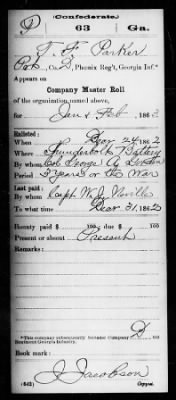 (Confederate.)
P 63 Ga.
T. F. Parker
Pvt, Co. D, Phœnix Reg't, Georgia Inf.*
Appears on
Company Muster Roll
of the organization named above,
for Jan & Feb, 1863
Enlisted:
When Decr 24, 1862
Where Thunderbolt Battery
By whom Col George A. Gordon
Period 3 years or the War
Last paid:
By whom Capt W. J. Neville
To what time Decr 31, 1862
Bounty paid $ 100; due $ 100
Present or absent Present
Remarks:
*This company subsequently became Company D, 63
Regiment Georgia Infantry.
Book mark:
J. Jacobson
(642) Copyist.